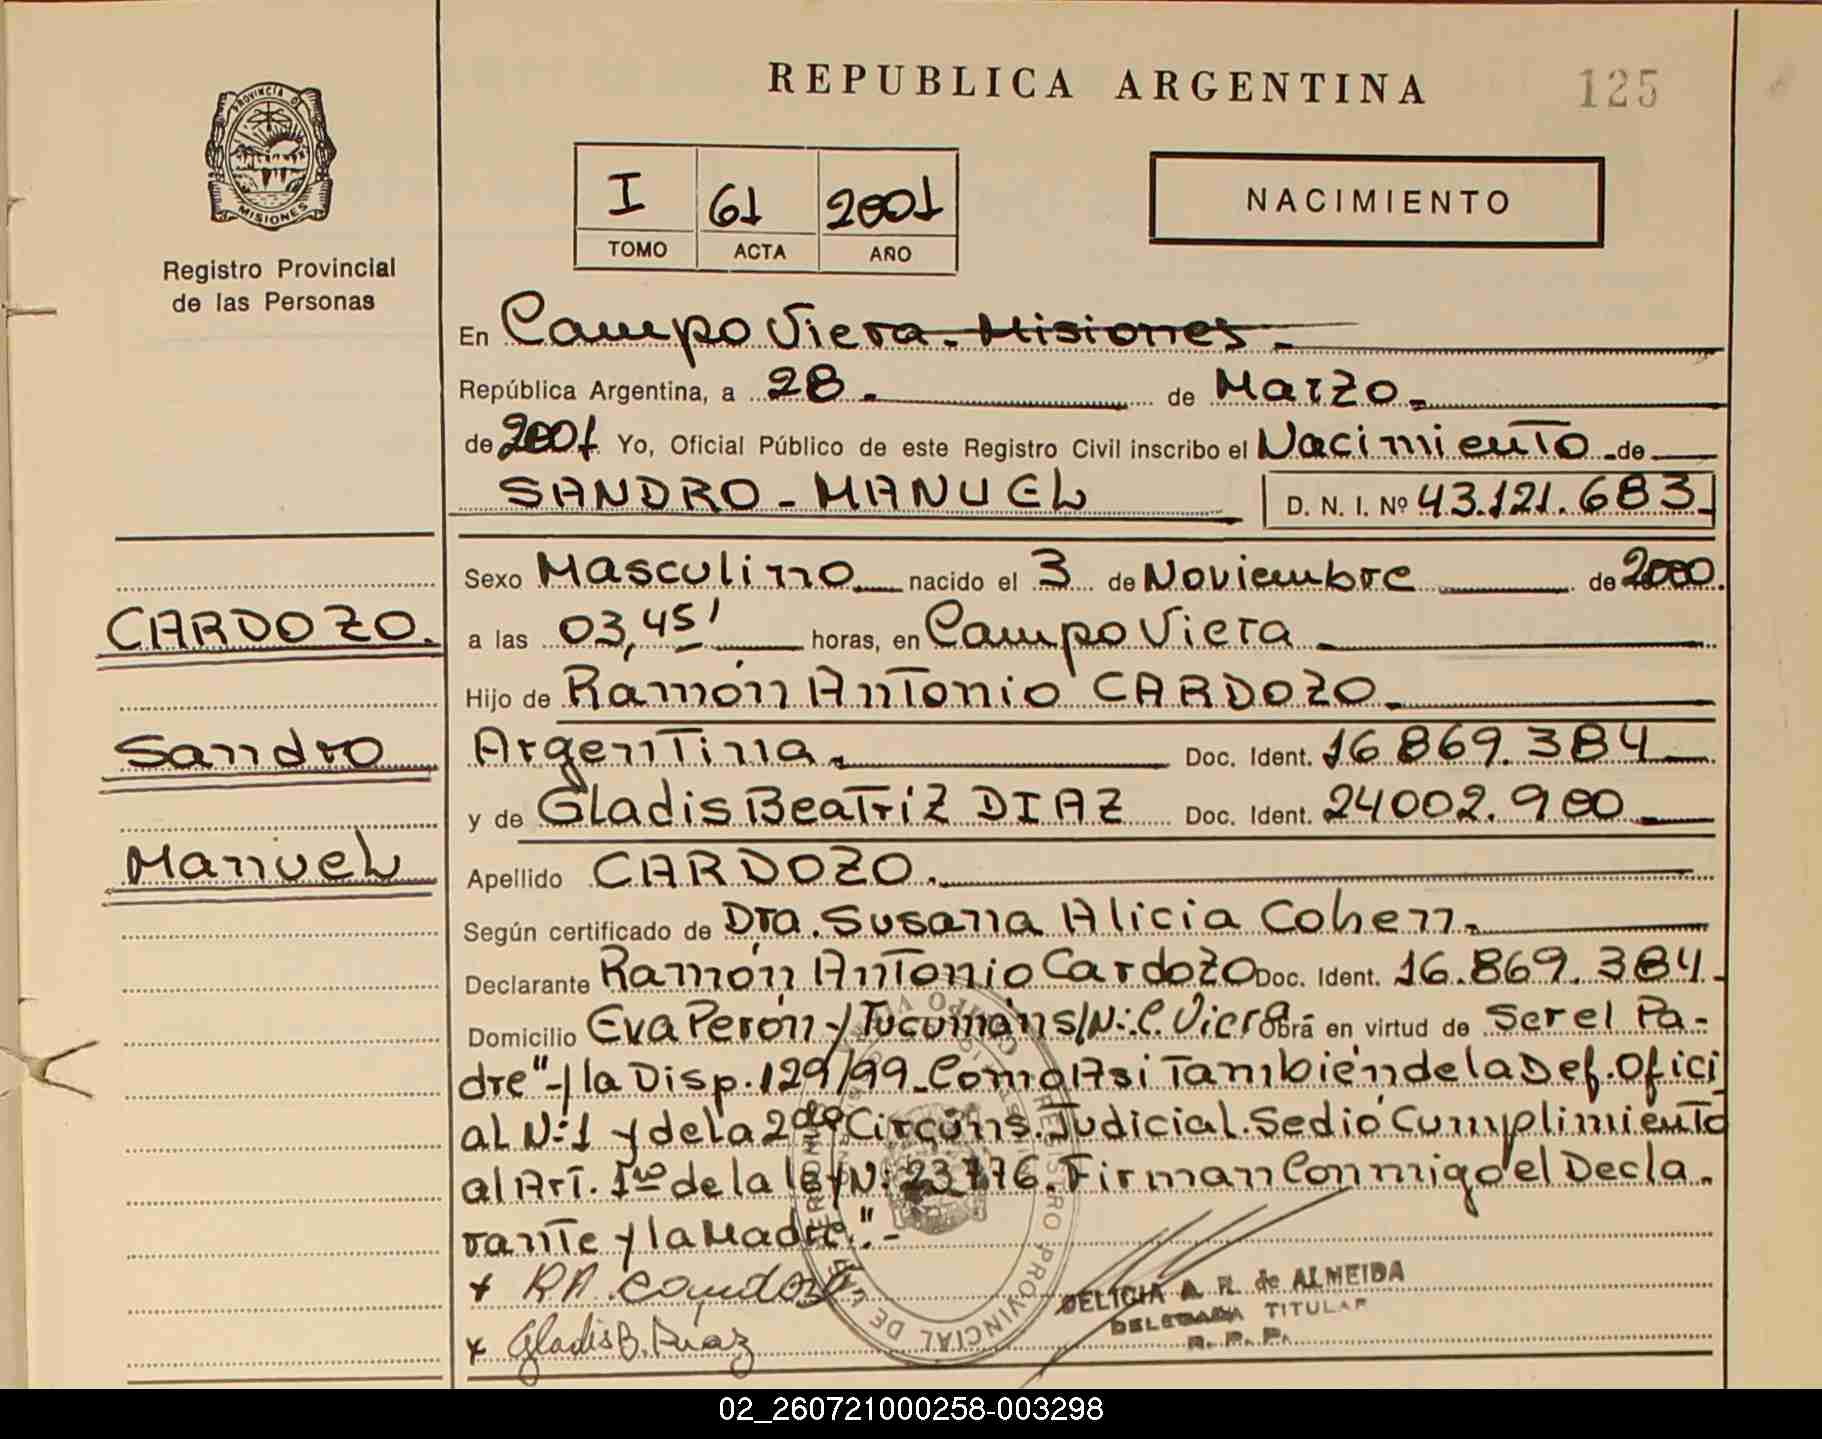 REPUBLICA ARGENTINA
125
PROVINCIA DE
MISIONES
Registro Provincial
de las Personas
I 61 2001
TOMO ACTA AÑO
NACIMIENTO
En Campo Viera - Misiones -
República Argentina, a 28. de Marzo.
de 2001 Yo, Oficial Público de este Registro Civil inscribo el Nacimiento de
SANDRO - MANUEL D. N. I. Nº 43.121.683
Sexo Masculino nacido el 3 de Noviembre de 2000.
CARDOZO.
a las 03,45' horas, en Campo Viera
Hijo de Ramón Antonio CARDOZO.
Sandro
Argentina. Doc. Ident. 16.869.384
y de Gladis Beatriz DIAZ Doc. Ident. 24002.900
Manuel
Apellido CARDOZO.
Según certificado de Dra. Susana Alicia Cohen.
Declarante Ramón Antonio Cardozo Doc. Ident. 16.869.384.
Domicilio Eva Perón y Tucumán s/N: C. Viera Obra en virtud de Ser el Pa-
dre"- y la Disp. 129/99. Como Asi También de la Def. Ofici
al N:1 y de la 2da Circuns. Judicial. Se dió Cumplimiento
al Art. 1ro de la ley N: 23776. Firman Conmigo el Decla.
rante y la Madre."-
+ RA. Cardozo
+ Gladis B. Diaz
REGISTRO PROVINCIAL DE LAS PERSONAS
CAMPO VIERA
DELICIA A. R. de ALMEIDA
DELEGADA TITULAR
R. P. P.
02_260721000258-003298